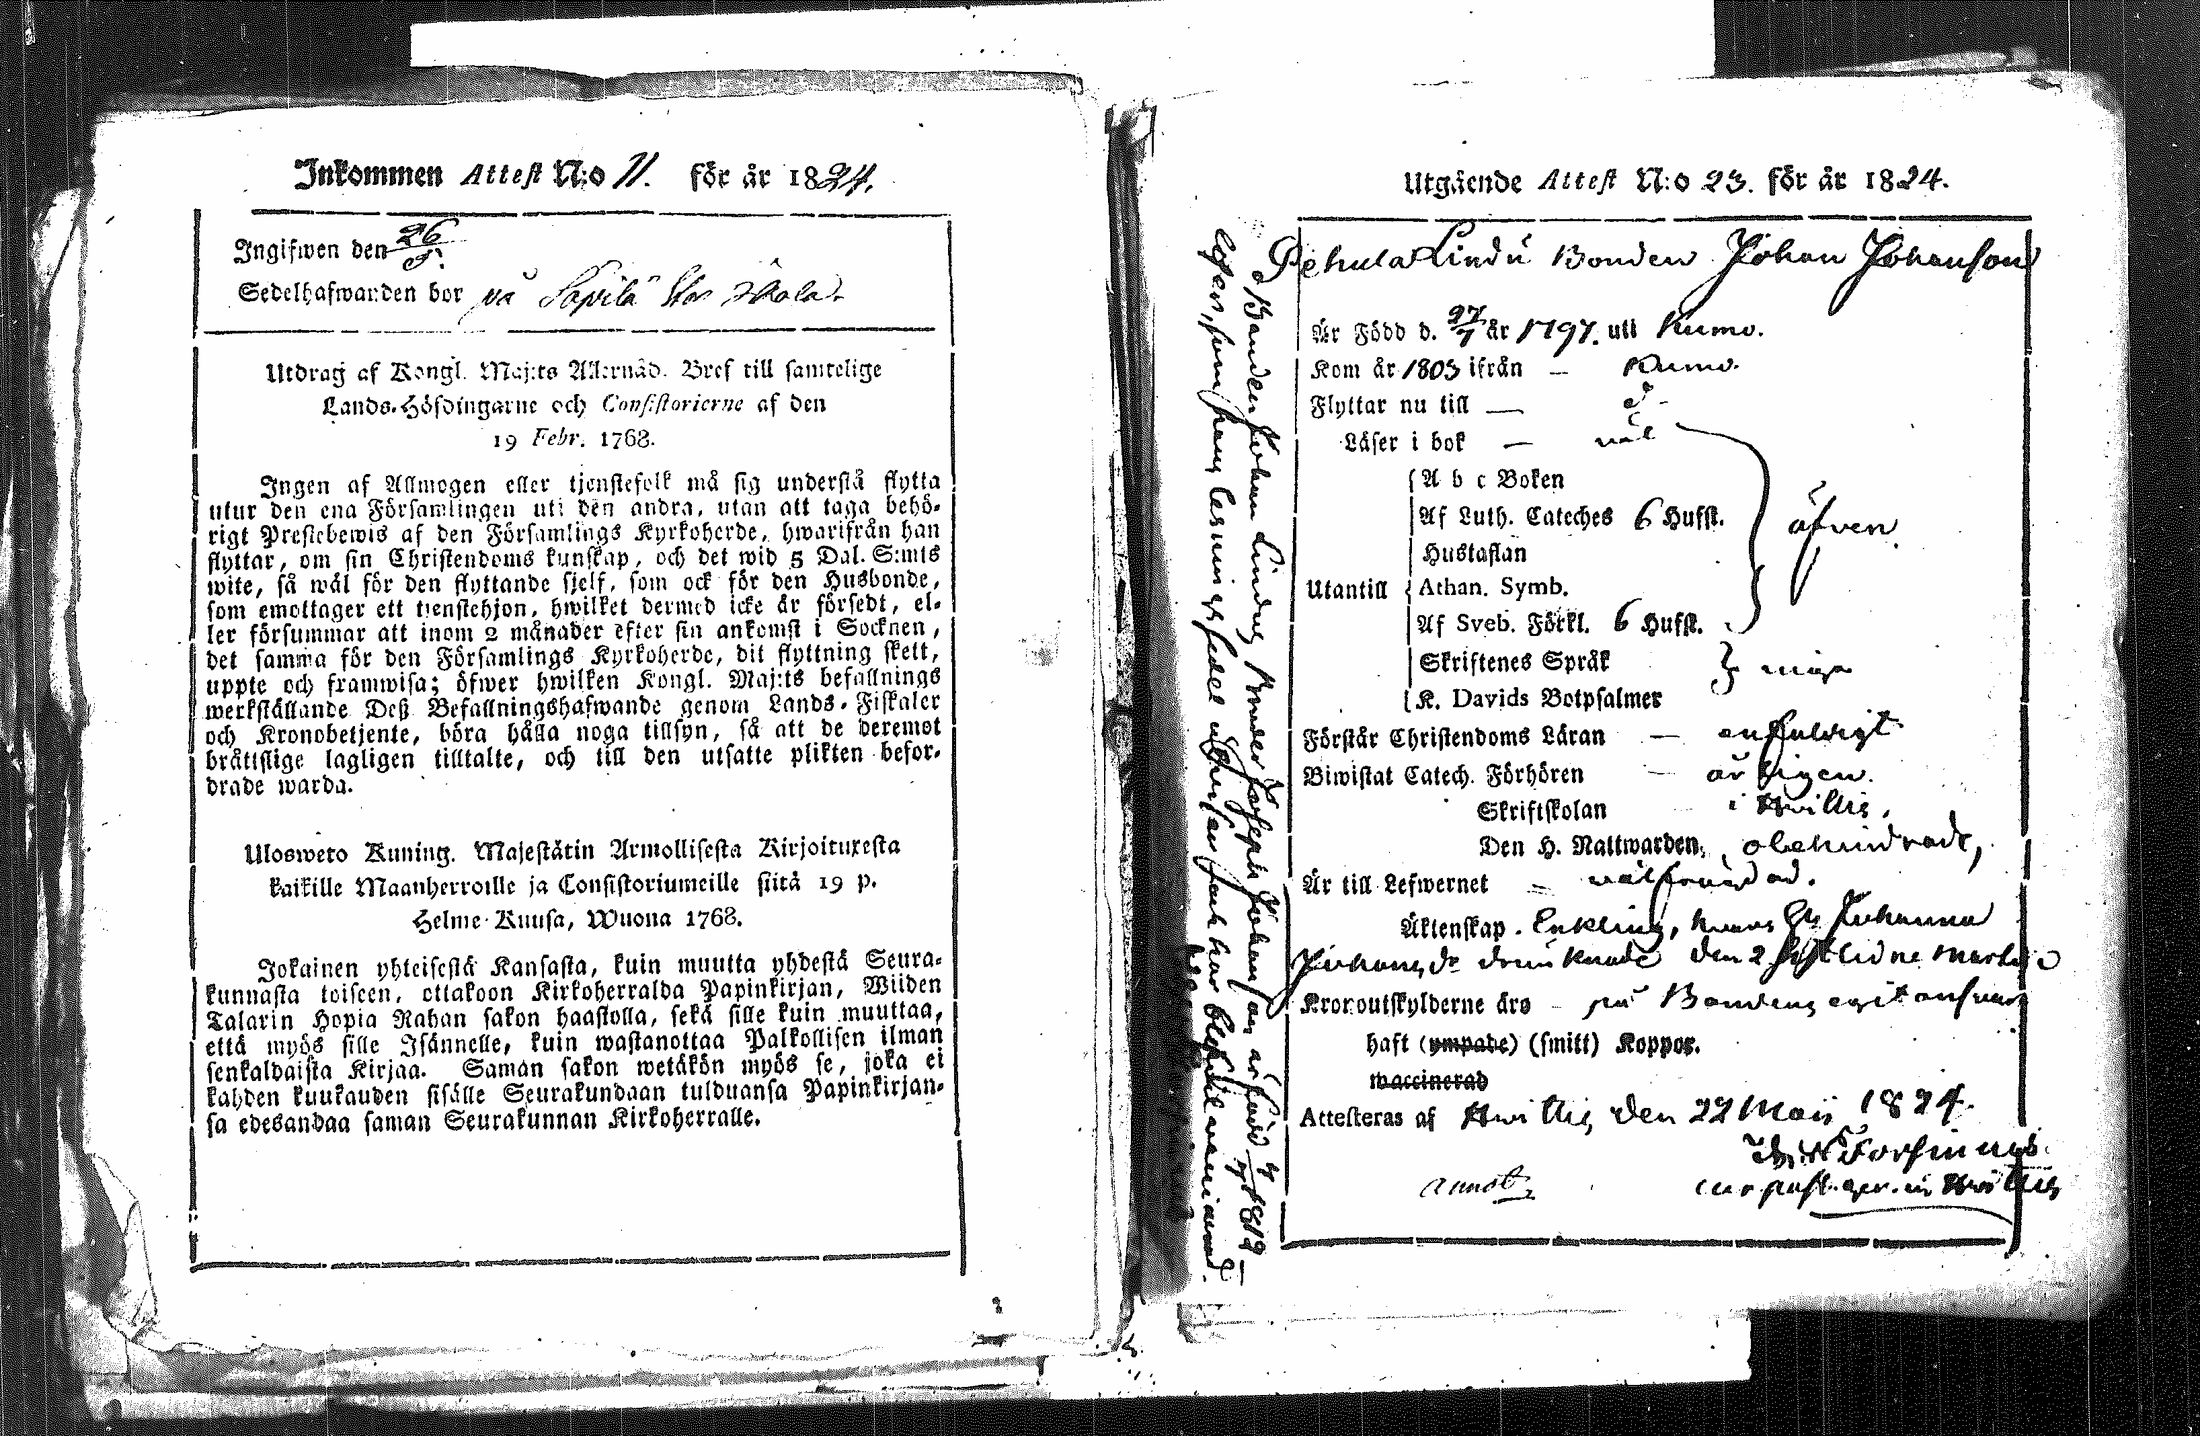 Inkommen Attest N:o 11. för år 1824.
Ingifwen den 26/9.
Sedelhafwanden bor på Sapilä
Utdrag af Kongl. Maj:ts Allernåd. Bref till samtelige
Lands-Höfdingarne och Consistorierne af den
19 Febr. 1768.
Ingen af Allmogen eller tjenstefolk må sig understå flytta
utur den ena Församlingen uti den andra, utan att taga behö-
rigt Prestebewis af den Församlings Kyrkoherde, hwarifrån han
flyttar, om sin Christendoms kunskap, och det wid 5 Dal. S:mts
wite, så wäl för den flyttande sjelf, som ock för den Husbonde,
som emottager ett tjenstehjon, hwilket dermed icke är försedt, el-
ler försummar att inom 2 månader efter sin ankomst i Socknen,
det samma för den Församlings Kyrkoherde, dit flyttning skett,
uppte och framwisa; öfwer hwilken Kongl. Maj:ts befallnings
werkställande Deß Befallningshafwande genom Lands-Fiskaler
och Kronobetjente, böra hålla noga tillsyn, så att de deremot
bråtislige lagligen tilltalte, och till den utsatte plikten befor-
drade warda.
Ulosweto Kuning. Majestätin Armollisesta Kirjoituxesta
kaikille Maanherroille ja Consistoriumeille siitä 19 p.
Helme-Kuusa, Wuona 1768.
Jokainen yhteisestä Kansasta, kuin muutta yhdestä Seura-
kunnasta toiseen, ottakoon Kirkoherralda Papinkirjan, Wiiden
Talarin Hopia Rahan sakon haastolla, sekä sille kuin muuttaa,
että myös sille Isännelle, kuin wastanottaa Palkollisen ilman
senkaldaista Kirjaa. Saman sakon wetäkön myös se, joka ei
kahden kuukauden sisälle Seurakundaan tulduansa Papinkirjan-
sa edesandaa saman Seurakunnan Kirkoherralle.
Utgående Attest N:o 23. för år 1824.
Pehula Lindu Bonden Johan Johansson
Är Född d. 27/7 år 1797. uti Kumo.
Kom år 1803 ifrån — Kumo.
Flyttar nu till — d:o
Läser i bok — väl
A b c Boken
Af Luth. Cateches 6 Hufst. äfven
Hustaflan
Utantill Athan. Symb.
Af Sveb. Förkl. 6 Hufst.
Skriftenes Språk
K. Davids Botpsalmer
Förstår Christendoms Läran — enfaldigt
Biwistat Catech. Förhören — årligen.
Skriftskolan i Hvittis,
Den H. Nattwarden, obehindradt,
Är till Lefwernet — välfräjdad.
Äktenskap. Enkling, hvars Johanna
drunknade den 2 sistlidne Martii
Kronoutskylderne äro — på Bondens eget ansvar
haft (ympade) (smitt) Koppor.
waccinerad
Attesteras af Hvittis den 22 Maii 1824.
Forsenius
in Hvittis
annot.
Bonden Johan Lindus Broder Joseph Johansson är född 1812